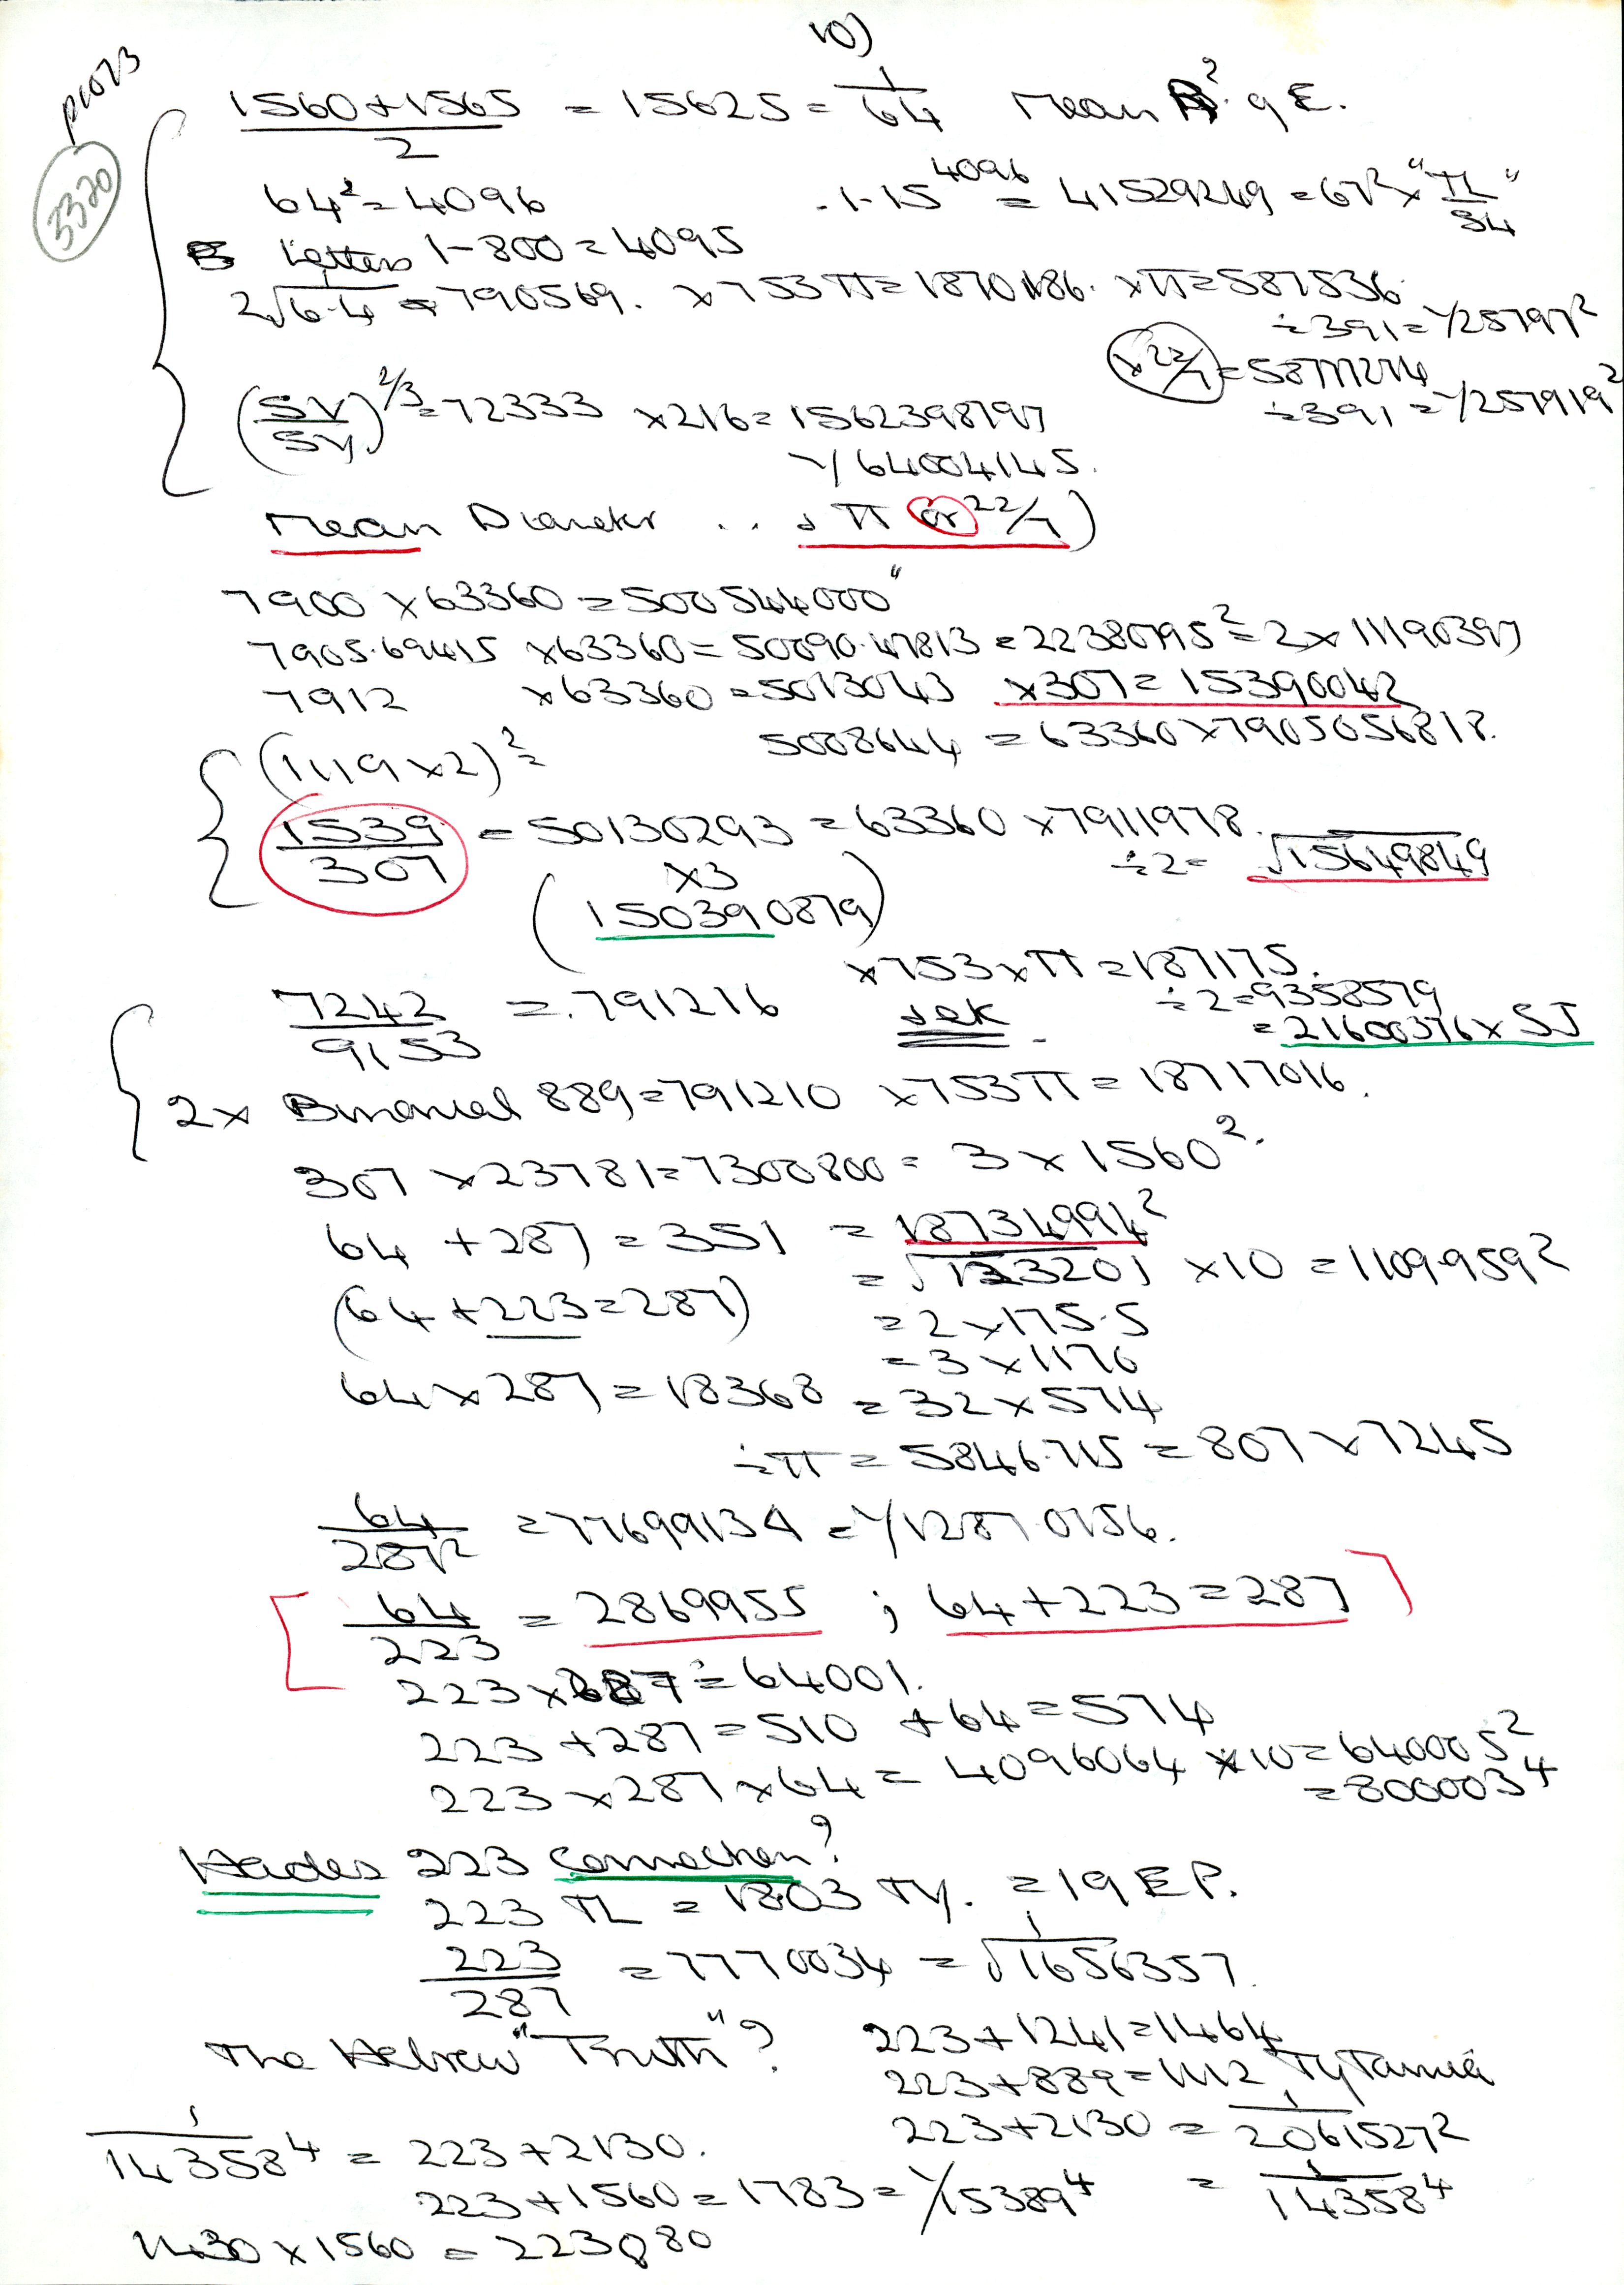 10)
p1023
3320
1560+1565 / 2 = 15625 = 1/64 Mean R² of E.
64² = 4096 .1-15 ^4096 = 41529249 = 67² x "TL"/S4
Letters 1-800 = 4095
2√6.4 = 790569. x753π = 1870186. xπ = 587536.
÷391 = 1/25797²
(x22/7) = 58777274
÷391 = 1/257919²
(SV/SY)^2/3 = 72333 x216 = 1562398797
1/64004145.
Mean Diameter ... π or 22/7)
7900 x 63360 = 500544000"
7905.69415 x63360 = 50090.47813 = 22380795² = 2 x 11190397
7912 x63360 = 5013043 x307 = 15390042
5008644 = 63360 x 7905056818.
(1119 x 2)² =
1539/307 = 50130293 = 63360 x 7911978.
÷2 = √15649849
x3
(150390879)
x753 x π = 187175.
7242/9153 = .791216 ÷2 = 9358579
= 21600376 x SJ
2x Binomial 889 = 791210 x753π = 18717016.
307 x 23781 = 7300800 = 3 x 1560².
64 + 287 = 351 = 18734994²
= √123201 x10 = 1109.959²
(64 + 223 = 287) = 2 x 175.5
= 3 x 1170
64 x 287 = 18368 = 32 x 574
÷π = 5846.715 = 807 x 7245
64/287² = 77699134 = 1/1287.0156.
[64/223 = 2869955 ; 64 + 223 = 287]
223 x 287 = 64001.
223 + 287 = 510 + 64 = 574
223 x 287 x 64 = 4096064 x 10 = 640005²
= 800003⁴
Hades 223 Connection?
223 TL = 1803 TY. = 19 EP.
223/287 = 7770034 = 1/√1656357.
The Hebrew "Truth"? 223 + 1241 = 1464
223 + 889 = 1112 TyTannia
223 + 2130 = 1/2061527²
1/14358⁴ = 223 + 2130.
= 1/14358⁴
223 + 1560 = 1783 = 1/15389⁴
1430 x 1560 = 2230880